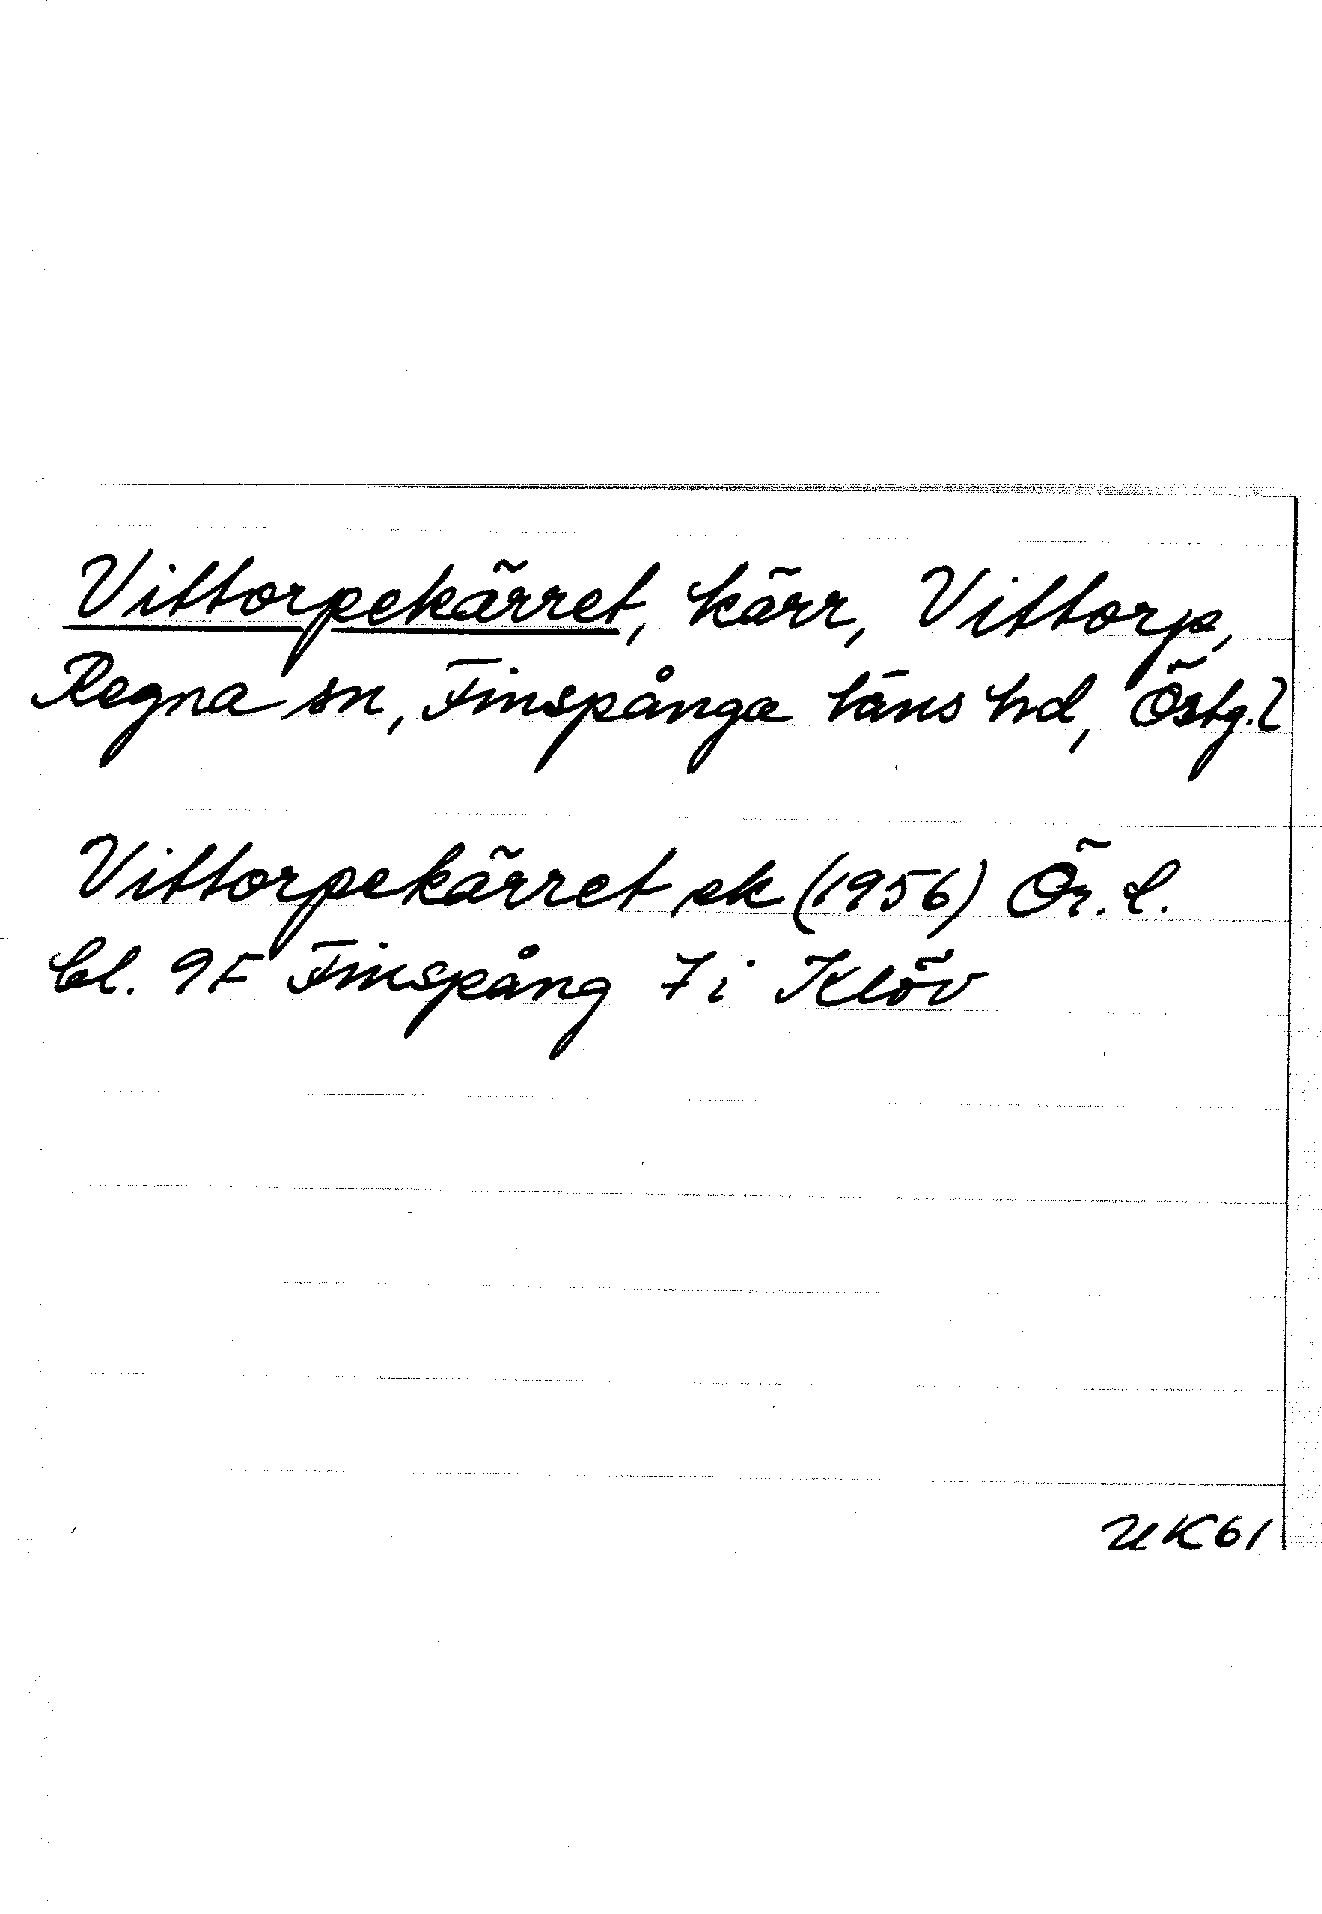 Vittorpekärret, kärr, Vittorp,
Regna sn, Finspånga läns hd, Östg.l
Vittorpekärret ek (1956) Ör. l.
bl. 9F Finspång 7i Klöv
UK61